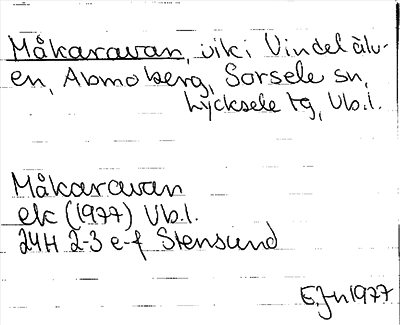 Måkaravan, vik i Vindelälv-
en, Abmoberg, Sorsele sn,
Lycksele tg, Vb.l.
Måkaravan
ek (1977) Vb.l.
24H 2-3 e-f Stensund
E.Jn 1977